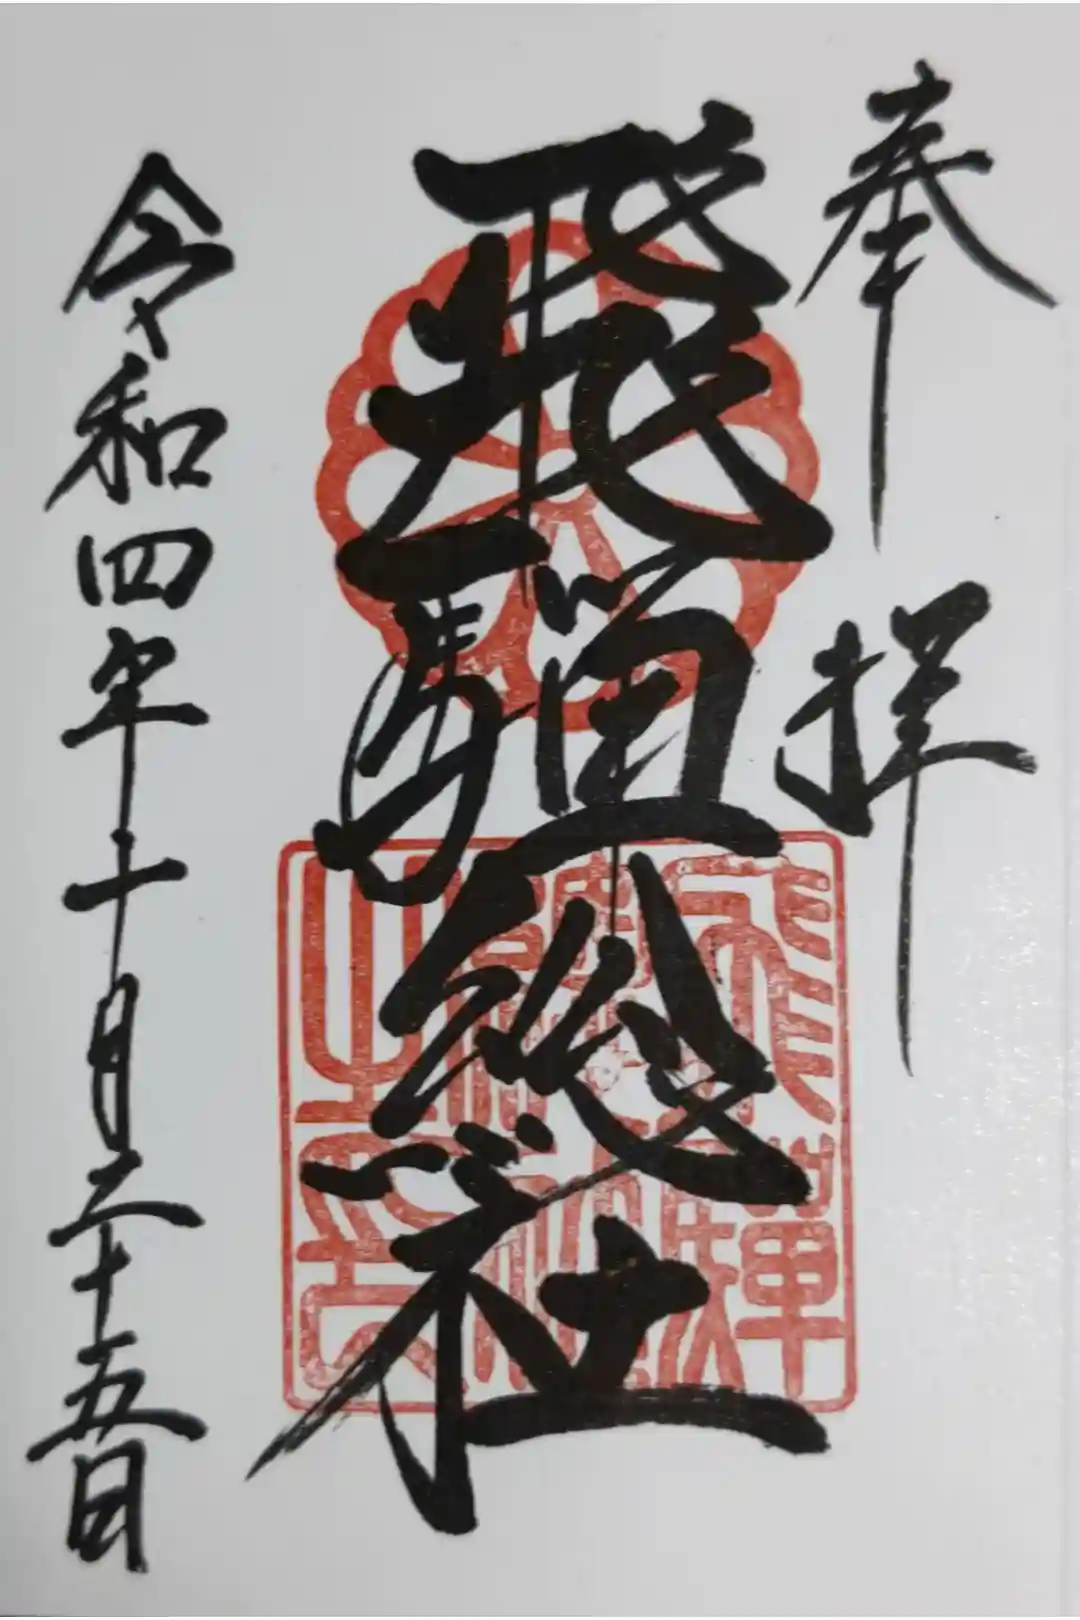 奉拝
飛騨総社
令和四年十月二十五日
飛驒
之印